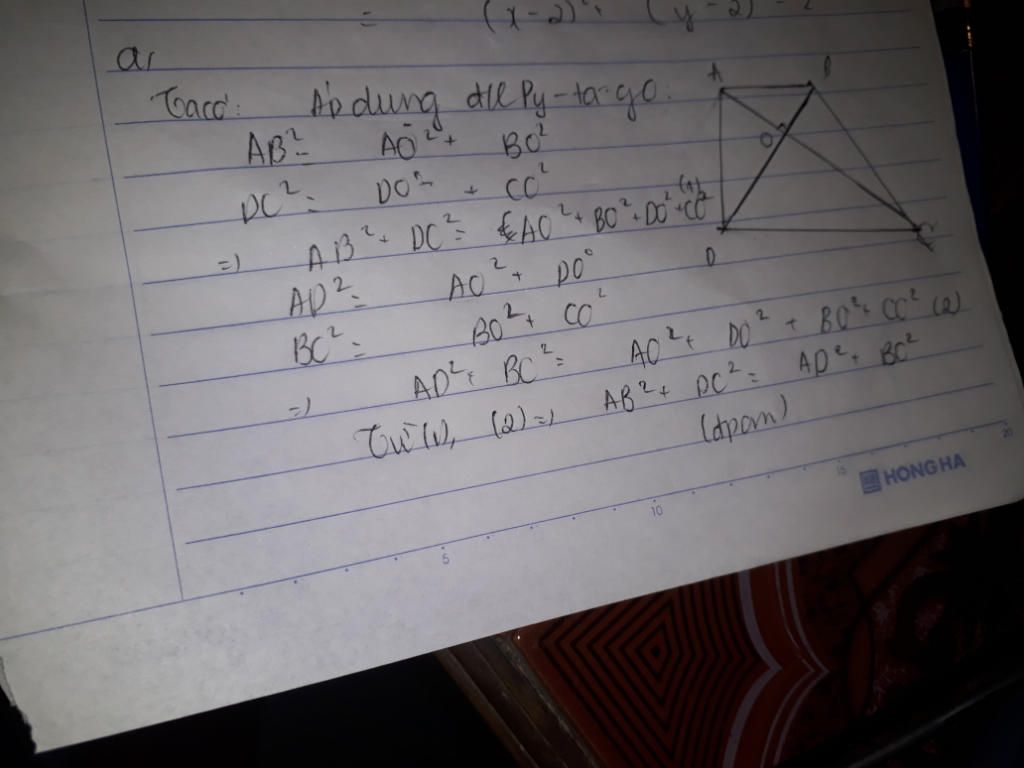 = (x-2)². (y-2)
a,
Ta có: Áp dụng đlí Py-ta-go:
AB² = AO² + BO²
DC² = DO² + CO²
=> AB² + DC² = AO² + BO² + DO² + CO² (1)
AD² = AO² + DO²
BC² = BO² + CO²
=> AD² + BC² = AO² + DO² + BO² + CO² (2)
Từ (1), (2) => AB² + DC² = AD² + BC²
(đpcm)
A B
O
D C
5 10 15 20
HONG HA